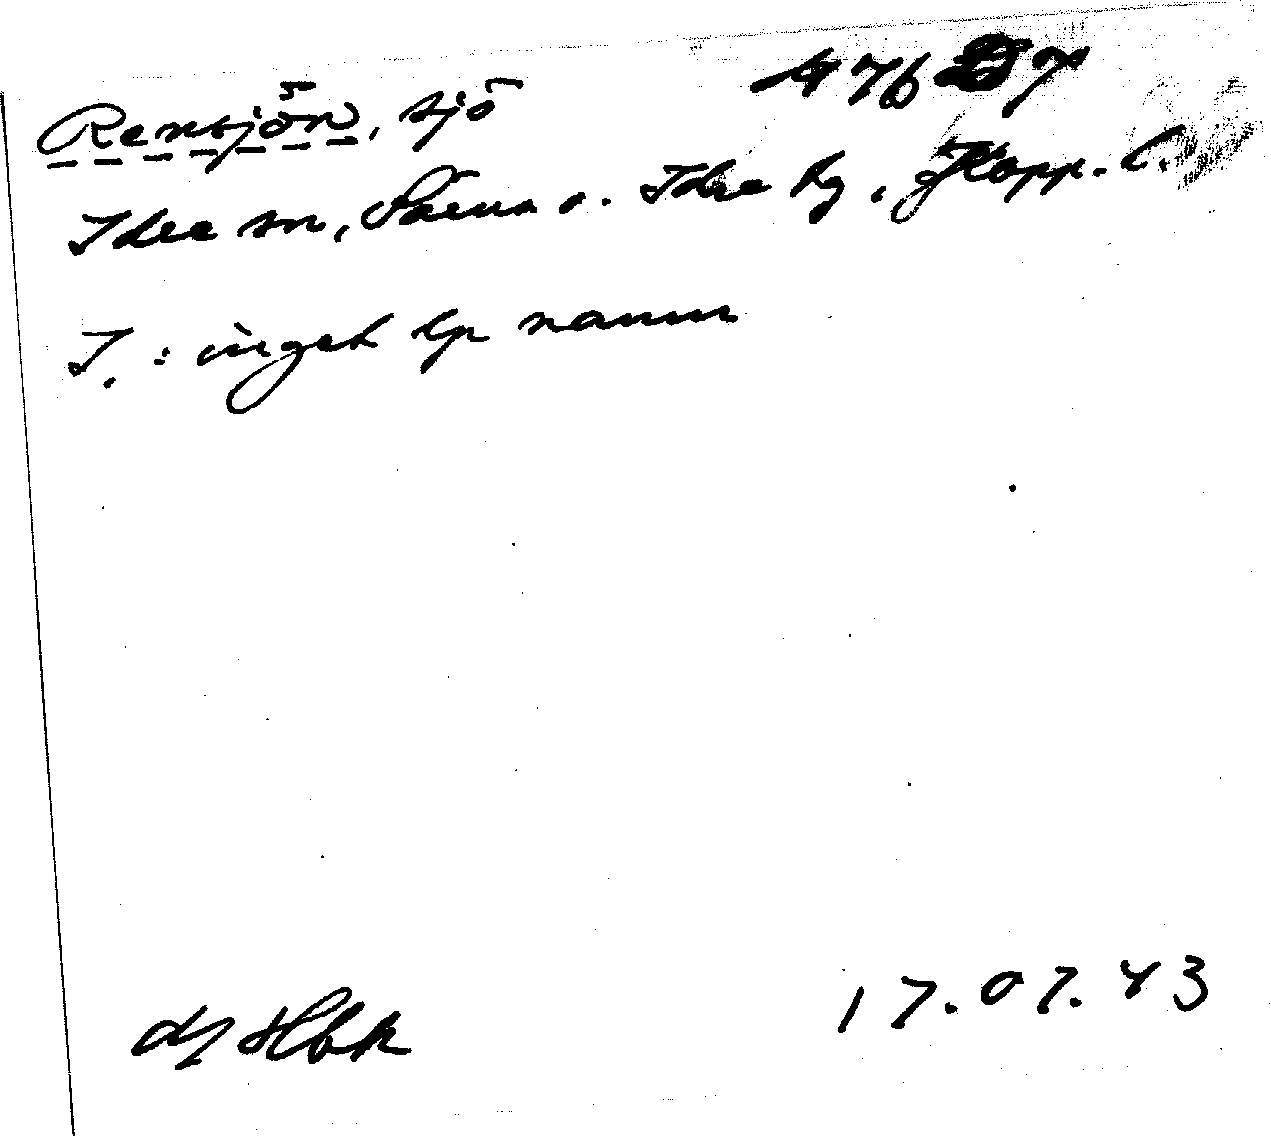 Rensjön, sjö
Idre sn, Särna o. Idre tg, Kopp. l.
I. : inget lp namn
17.07.43